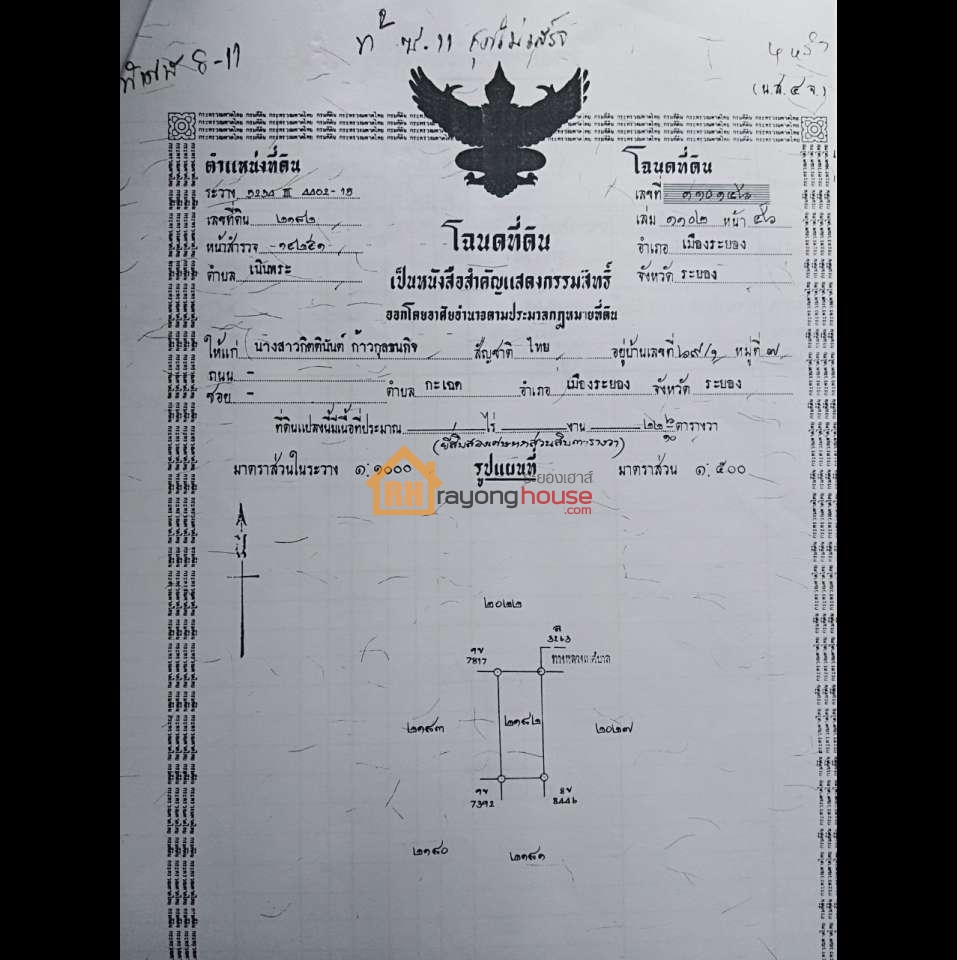 8-11
(น.ส.๔ จ.)
ตำแหน่งที่ดิน
โฉนดที่ดิน
ระวาง 5234 III 4402-15
เลขที่
เลขที่ดิน ๒๑๘๒
เล่ม ๑๑๐๒ หน้า ๕๖
หน้าสำรวจ
โฉนดที่ดิน
อำเภอ เมืองระยอง
ตำบล เนินพระ
จังหวัด ระยอง
เป็นหนังสือสำคัญแสดงกรรมสิทธิ์
ออกโดยอาศัยอำนาจตามประมวลกฎหมายที่ดิน
ให้แก่ นางสาวกิตตินันต์ ก้าวกุลธนกิจ สัญชาติ ไทย อยู่บ้านเลขที่ ๒๙/๑ หมู่ที่ ๗
ถนน -
ซอย - ตำบล กะเฉด อำเภอ เมืองระยอง จังหวัด ระยอง
ที่ดินแปลงนี้มีเนื้อที่ประมาณ ไร่ งาน ๒๒ ๖/๑๐ ตารางวา
(ยี่สิบสองเศษหกส่วนสิบตารางวา)
มาตราส่วนในระวาง ๑:๑๐๐๐ รูปแผนที่ มาตราส่วน ๑:๕๐๐
ระยองเฮาส์
RH rayonghouse
.com
น
๒๐๒๒
3263
7817 ทางหลวงเทศบาล
๒๑๘๓ ๒๑๘๒ ๒๐๒๗
7392 8446
๒๑๘๐ ๒๑๘๑